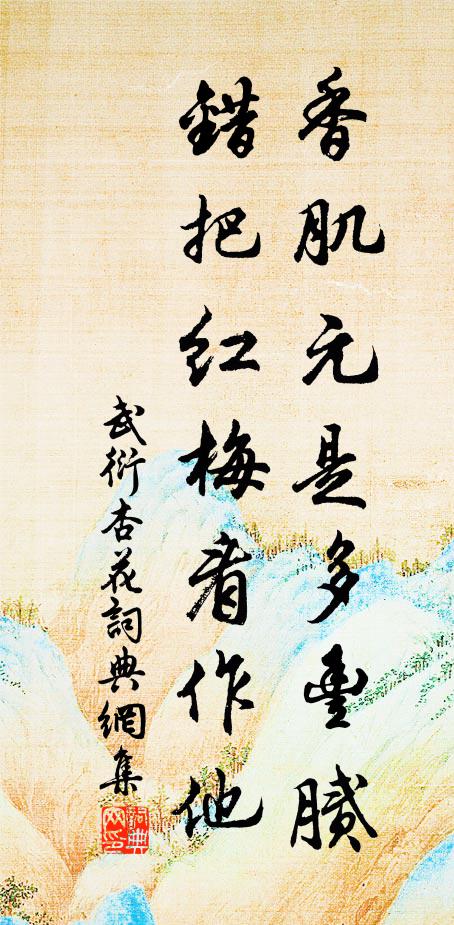 香肌元是多豐膩
錯把紅梅看作他
武衍杏花詞典網集
詞典網印